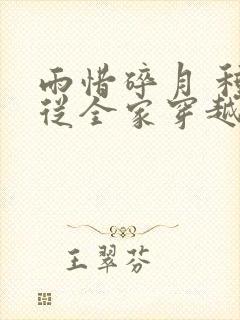 雨惜碎月 種
從全家穿越
王翠芬